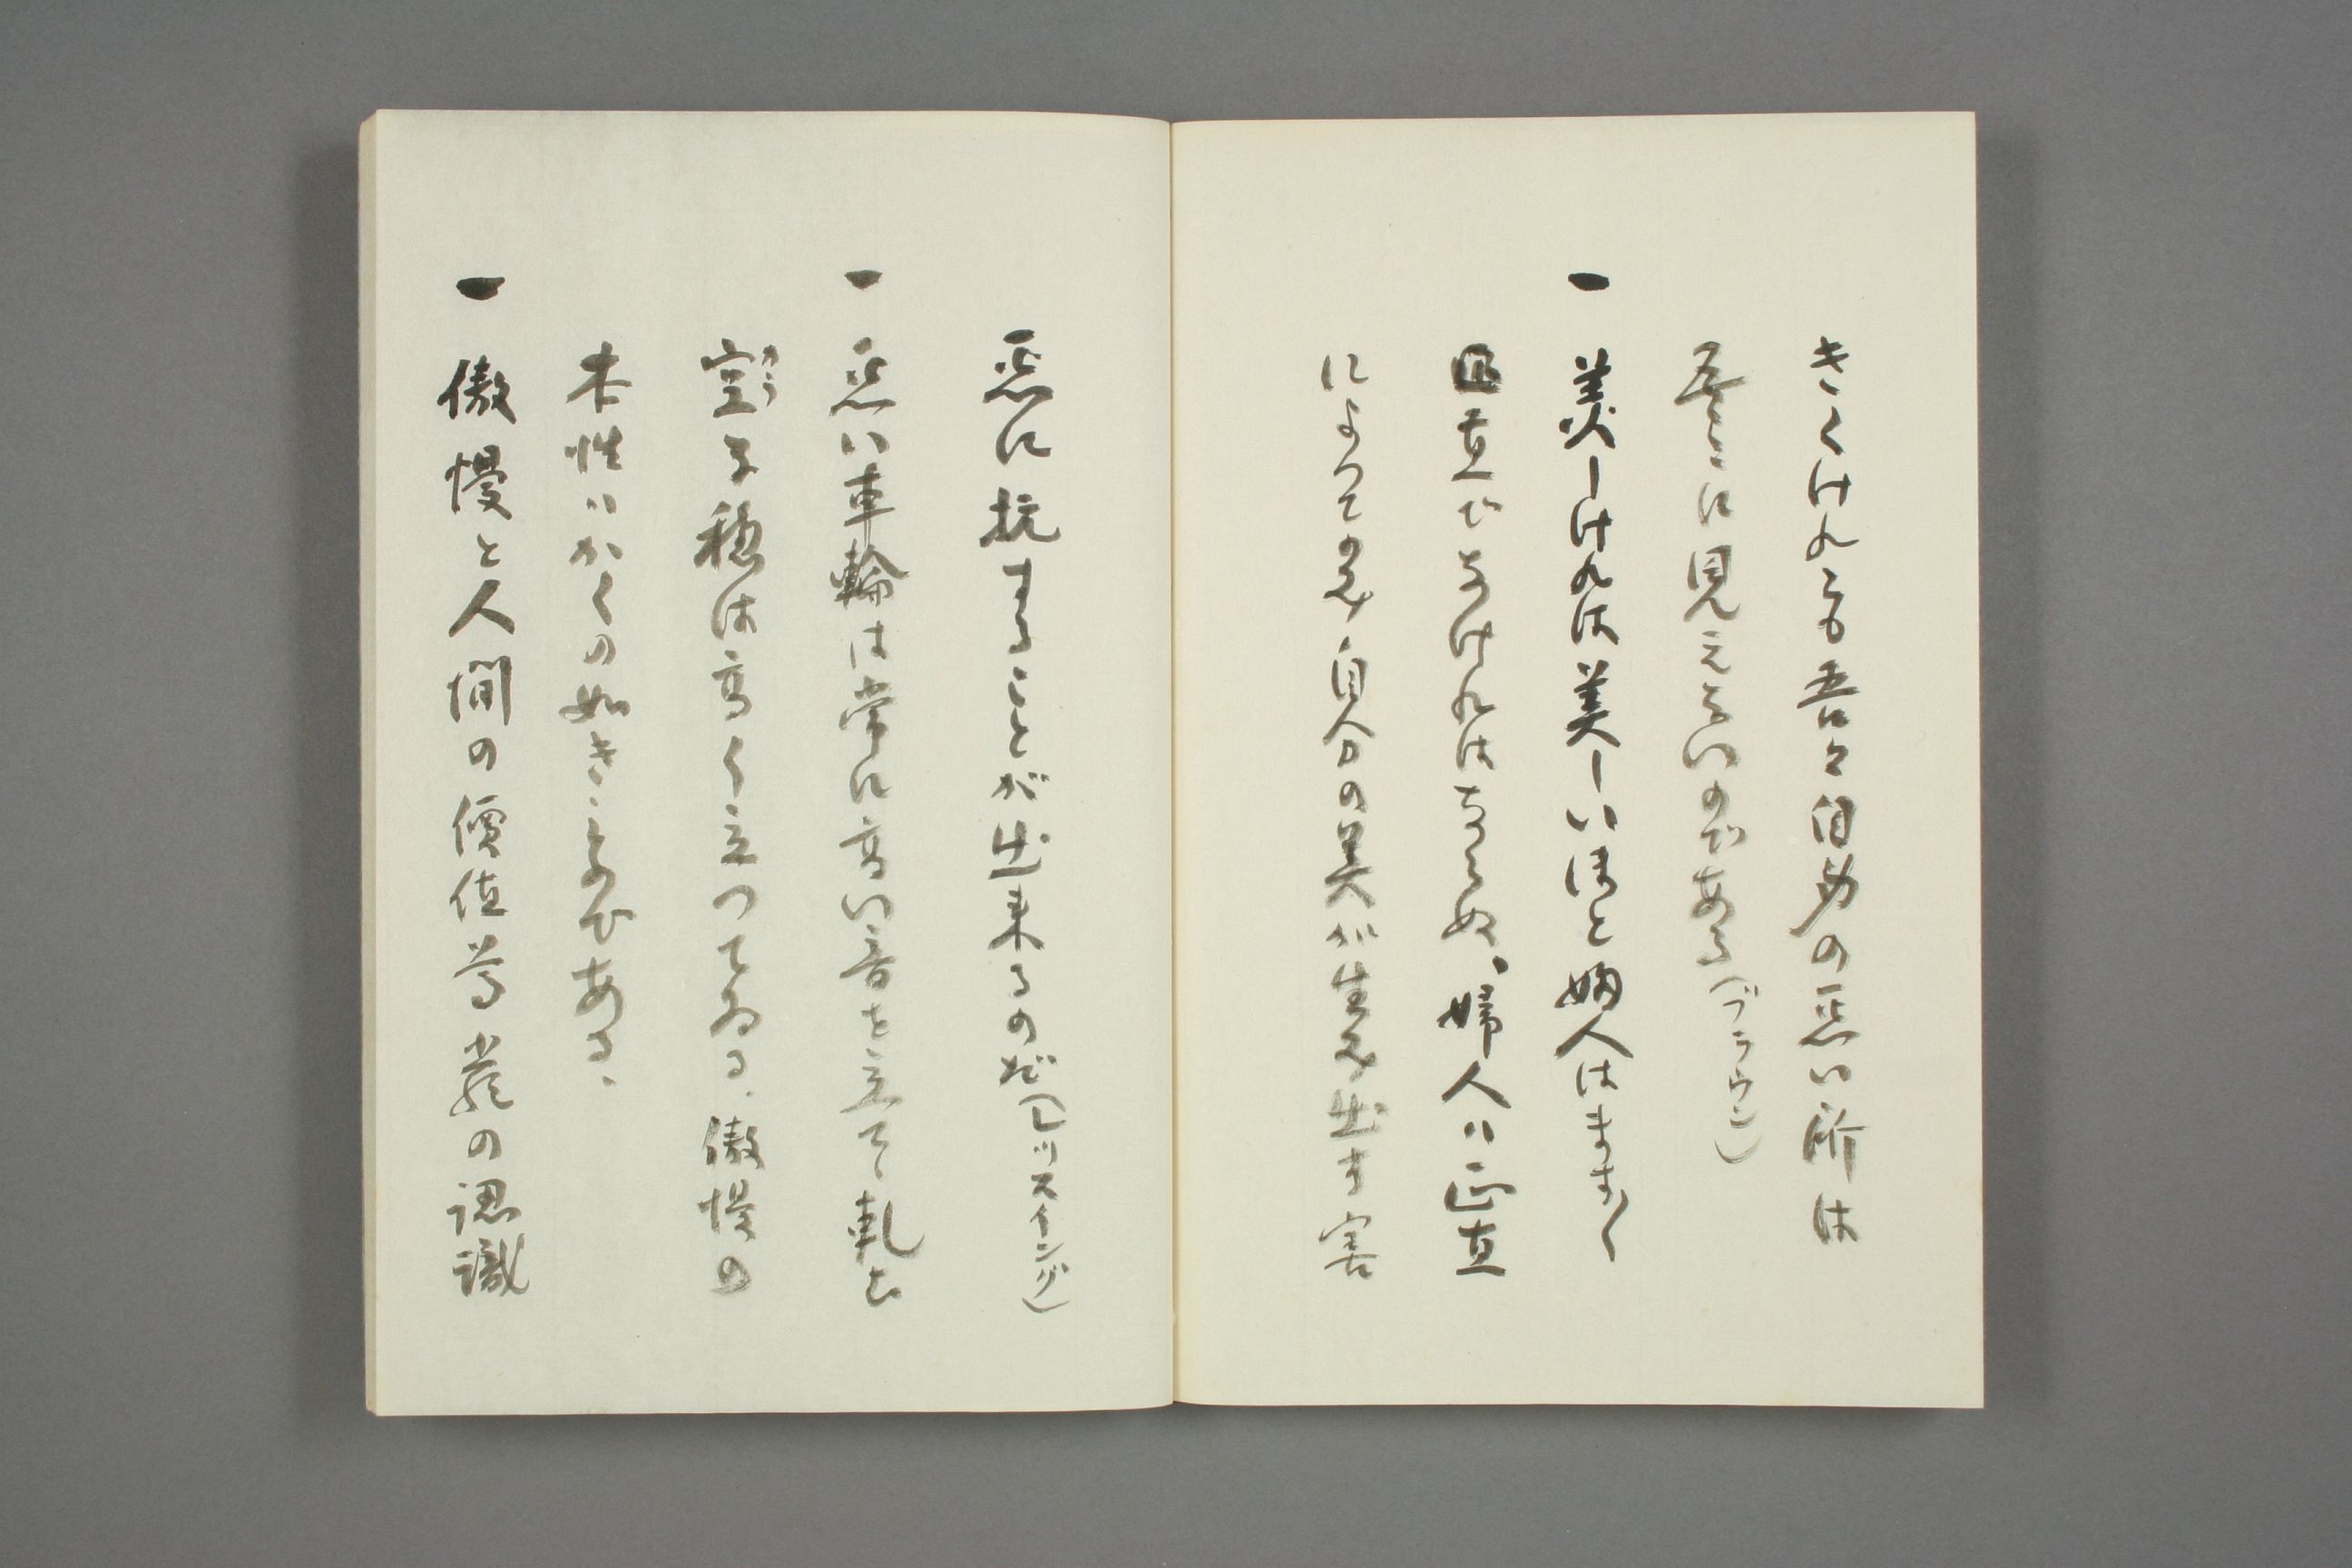 きくけれども吾々自身の悪い所は
吾々に見えないのである(ブラウン)
一 美しければ美しいほど婦人はます〳〵
正直でなければならぬ、婦人は正直
によつてのみ自分の美が生み出す害
悪に抗することが出来るのだ(レッスイング)
一 悪い車輪は常に高い音を立てゝ軋む
空な穂は高く立つてゐる、傲慢の
本性はかくの如きものである、
一 傲慢と人間の價値尊嚴の認識